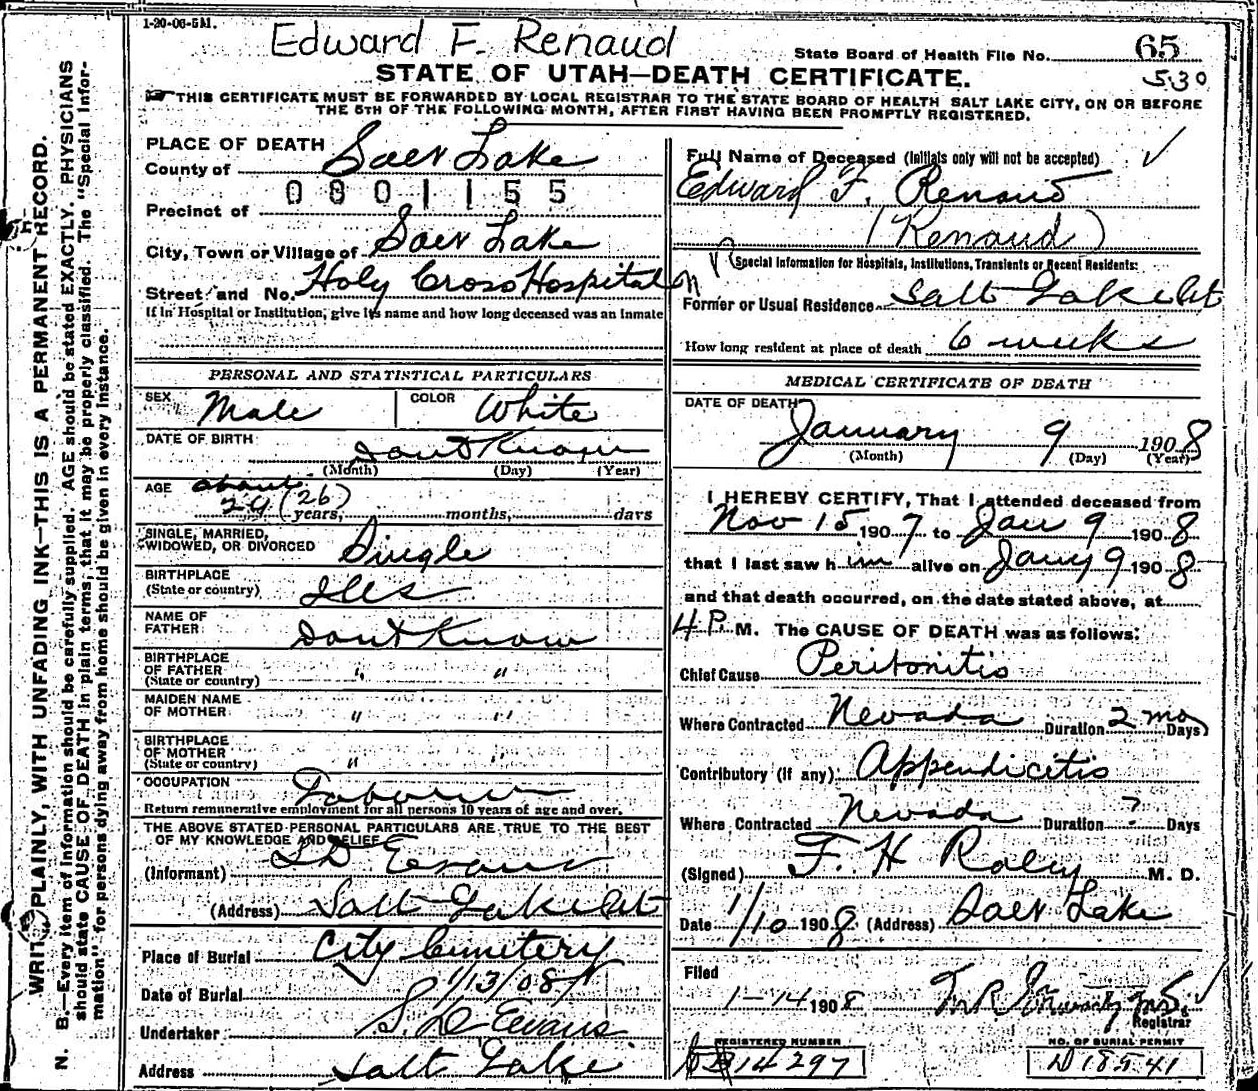 1-20-06-5M.
Edward F. Renaud
State Board of Health File No. 65
530
STATE OF UTAH—DEATH CERTIFICATE.
THIS CERTIFICATE MUST BE FORWARDED BY LOCAL REGISTRAR TO THE STATE BOARD OF HEALTH SALT LAKE CITY, ON OR BEFORE
THE 5TH OF THE FOLLOWING MONTH, AFTER FIRST HAVING BEEN PROMPTLY REGISTERED.
WRITE PLAINLY, WITH UNFADING INK—THIS IS A PERMANENT RECORD.
N. B.—Every item of information should be carefully supplied. AGE should be stated EXACTLY. PHYSICIANS
should state CAUSE OF DEATH in plain terms, that it may be properly classified. The "Special Infor-
mation" for persons dying away from home should be given in every instance.
PLACE OF DEATH
County of Salt Lake
0801155
Precinct of
City, Town or Village of Salt Lake
Street and No. Holy Cross Hospital
If in Hospital or Institution, give its name and how long deceased was an Inmate
PERSONAL AND STATISTICAL PARTICULARS
SEX Male COLOR White
DATE OF BIRTH Dont Know
(Month) (Day) (Year)
AGE about
29 (26) years, months, days
SINGLE, MARRIED,
WIDOWED, OR DIVORCED Single
BIRTHPLACE
(State or country) Ills
NAME OF
FATHER Dont Know
BIRTHPLACE
OF FATHER " "
(State or country)
MAIDEN NAME
OF MOTHER " "
BIRTHPLACE
OF MOTHER " "
(State or country)
OCCUPATION Laborer
Return remunerative employment for all persons 10 years of age and over.
THE ABOVE STATED PERSONAL PARTICULARS ARE TRUE TO THE BEST
OF MY KNOWLEDGE AND BELIEF
(Informant) S D Evans
(Address) Salt Lake City
Place of Burial City Cemetery
Date of Burial 1/13/08
Undertaker S. D. Evans
Address Salt Lake
Full Name of Deceased (Initials only will not be accepted)
Edward F. Renaud
(Renaud)
Special Information for Hospitals, Institutions, Transients or Recent Residents:
Former or Usual Residence Salt Lake City
How long resident at place of death 6 weeks
MEDICAL CERTIFICATE OF DEATH
DATE OF DEATH
January 9 1908
(Month) (Day) (Year)
I HEREBY CERTIFY, That I attended deceased from
Nov 15 1907 to Jan 9 1908
that I last saw him alive on Jany 9 1908
and that death occurred, on the date stated above, at
4 P. M. The CAUSE OF DEATH was as follows:
Chief Cause Peritonitis
Where Contracted Nevada Duration 2 mo Days
Contributory (if any) Appendicitis
Where Contracted Nevada Duration ? Days
(Signed) F. H. Raley M. D.
Date 1/10 1908 (Address) Salt Lake
Filed
1-14 1908
Registrar
REGISTERED NUMBER
14297
NO. OF BURIAL PERMIT
D 18541